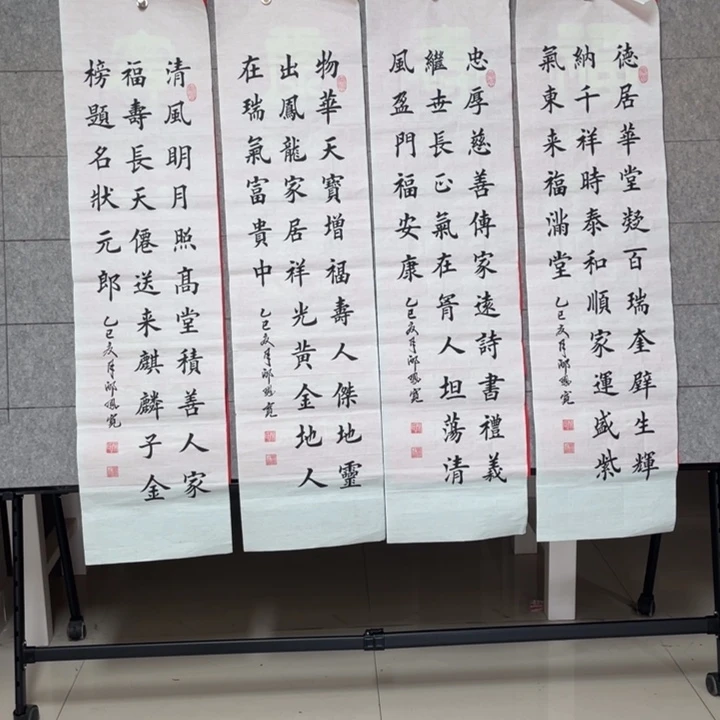 德居華堂凝百瑞奎壁生輝
納千祥時泰和順家運盛紫
氣東来福滿堂
乙巳夏月
忠厚慈善傳家遠詩書禮義
繼世長正氣在胷人坦蕩清
風盈門福安康
乙巳夏月
物華天寶增福壽人傑地靈
出鳳龍家居祥光黄金地人
在瑞氣富貴中
乙巳夏月
清風明月照髙堂積善人家
福壽長天僊送来麒麟子金
榜題名狀元郎
乙巳夏月